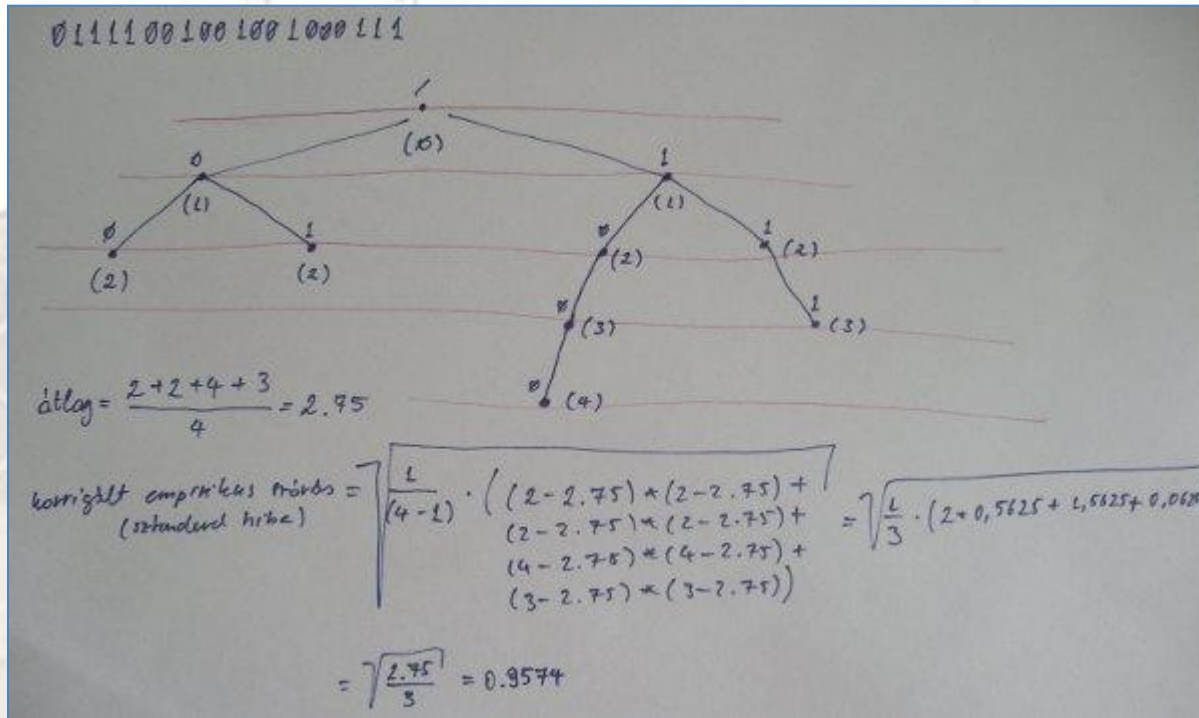 0111100100100100 0111
/
(0)
0 1
(1) (1)
0 1 0 1
(2) (2) (2) (2)
0 1
(3) (3)
0
(4)
átlag = 2+2+4+3 / 4 = 2.75
korrigált empirikus szórás = √ 1/(4-1) · ((2-2.75)*(2-2.75)+
(sztenderd hiba)
(2-2.75)*(2-2.75)+
(4-2.75)*(4-2.75)+
(3-2.75)*(3-2.75))
= √ 1/3 · (2*0,5625 + 1,5625 + 0,062
= √ 2.75/3 = 0.9574